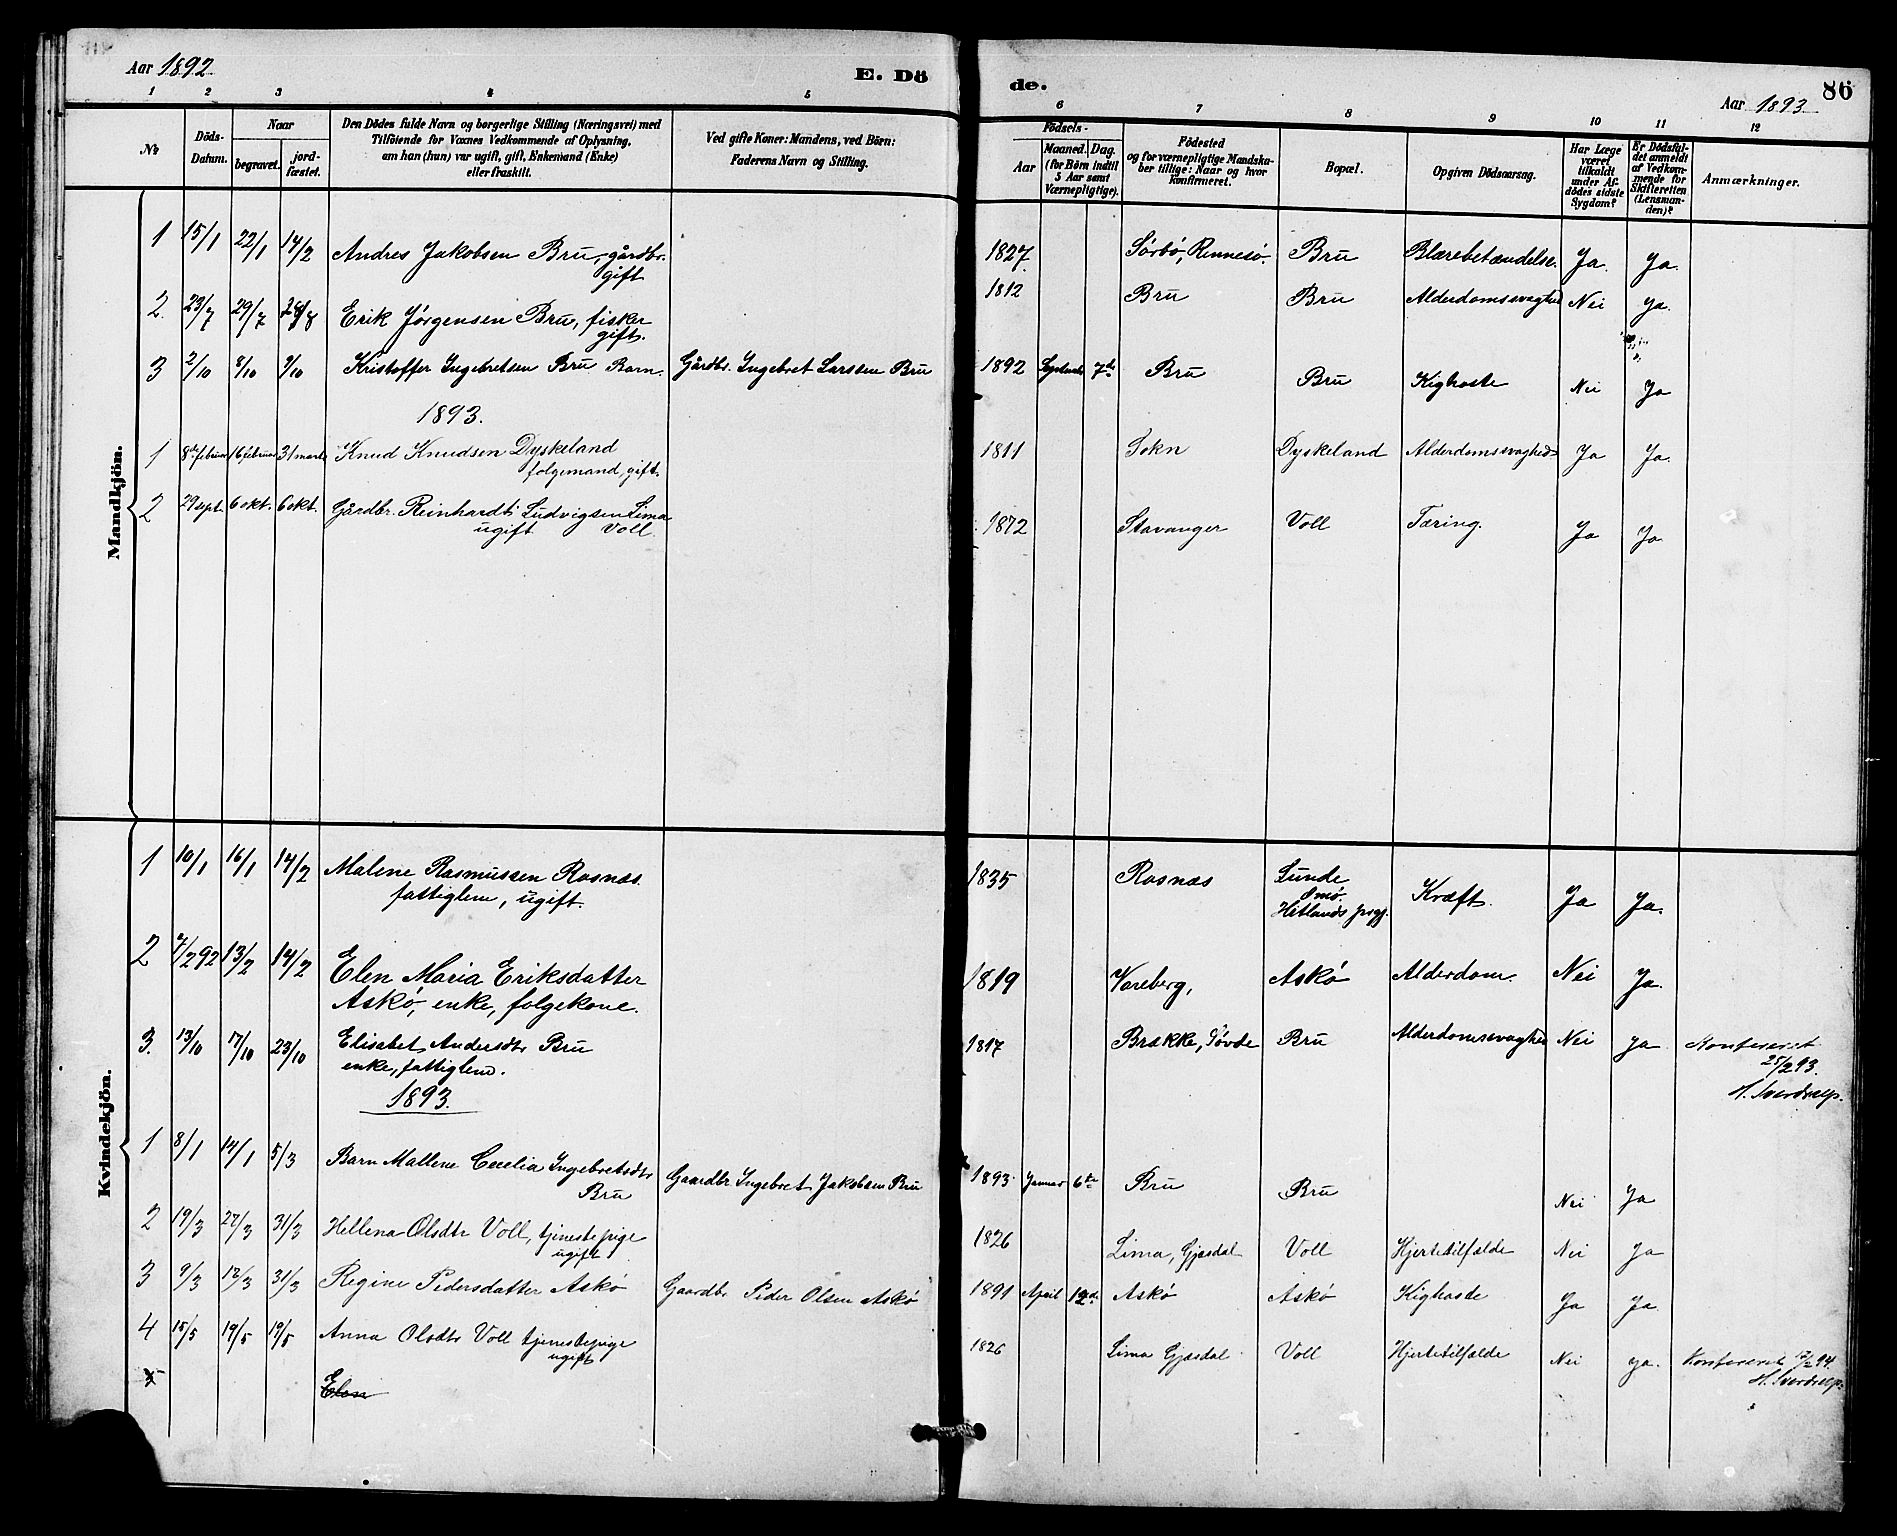 Aar 1892. E. Dö
de. Aar 1893. 86
1 2 3 4 5 6 7 8 9 10 11 12
No
Döds-Datum.
Naar
begravet.
jord-fæstet.
Den Dödes fulde Navn og borgerlige Stilling (Næringsvei) med
Tilföiende for Voxnes Vedkommende af Oplysning,
om han (hun) var ugift, gift, Enkemand (Enke)
eller fraskilt.
Ved gifte Koner: Mandens, ved Börn:
Faderens Navn og Stilling.
Födsels-
Aar
Maaned. Dag.
(for Börn indtil
5 Aar samt
Værnepligtige).
Födested
og for værnepligtige Mandska-
ber tillige: Naar og hvor
konfirmeret.
Bopæl.
Opgiven Dödsaarsag.
Har Læge
været
tilkaldt
under Af-
dödes sidste
Sygdom?
Er Dödsfal-
det anmeldt
af Vedkom-
mende for
Skifteretten
(Lensman-
den)?
Anmærkninger.
Mandkjön.
1 15/1 22/1 14/2 Andres Jakobsen Bru, gårdbr. 1827. Sørbø, Rennesø. Bru Blærebetændelse. Ja. Ja.
gift
2. 23/7 29/7 28/8 Erik Jørgensen Bru, fisker 1812 Bru Bru Alderdomssvaghed Nei Ja.
gift.
3 2/10 8/10 9/10 Kristoffer Ingebretsen Bru Barn. Gårdbr. Ingebret Larssen Bru 1892 7de Bru Bru Kighoste Nei Ja
1893.
1 8de februar 16 februar 31 marts Knud Knudsen Dyskeland 1811 Fokn Dyskeland Alderdomssvaghed Ja Ja.
folgemand, gift.
2 29 sept. 6 okt. 6 okt. Gårdbr. Reinhardt Ludvigsen Lima 1872 Stavanger Voll Tæring. Ja Ja.
ugift. Voll.
Kvindekjön.
1 10/1 16/1 14/2 Malene Rasmussen Rosnæs. 1835 Rosnæs Lunde
Ømø.
Hetlands prgj. Kræft. Ja Ja.
fattiglem, ugift.
2 7/2 92 13/2 14/2 Elen Maria Eriksdatter 1819 Vareberg, Askø Alderdom. Nei Ja.
Askø, enke, folgekone.
3. 13/10 17/10 23/10 Elisabet Andersdtr Bru 1817 Brække, Søvde Bru Alderdomssvaghed Nei Ja Konfereret
enke, fattiglem. 25/2 93.
H. Sverdrup.
1893.
1 8/1 14/1 5/3 Barn Mallene Cecelia Ingebretsdtr Gaardbr. Ingebret Jakobsen Bru 1893 Januar 6te Bru Bru Nei Ja
Bru
2 19/3 27/3 31/3 Hellena Olsdtr Voll, tjenestepige 1826 Lima, Gjæsdal Voll Hjertetilfælde Nei Ja
ugift
3 9/3 12/3 31/3 Regine Pedersdatter Askø Gaardbr Peder Olsen Askø 1891 April 12de Askø Askø Kighoste Ja Ja
4 15/5 19/5 19/5 Anna Olsdtr Voll tjenestepige 1826 Lima Gjæsdal Voll Hjertetilfælde Nei Ja. Konfereret 17/2 94.
ugift H. Sverdrup.
Elen